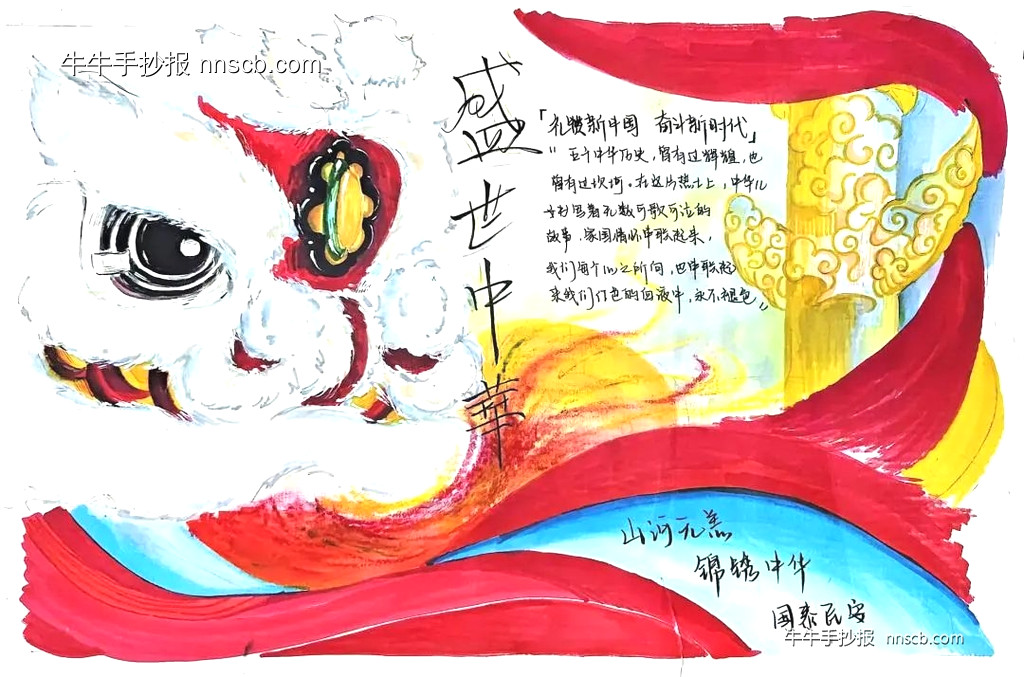 牛牛手抄报 nnscb.com
盛世中華
「礼赞新中国 奋斗新时代」
"五千中华历史，曾有过辉煌，也
曾有过坎坷。在这片热土上，中华儿
女书写着无数可歌可泣的
故事，家国情怀串联起来，
我们每个心之所向，也串联起
来我们红色的血液中，永不褪色"
山河无恙
锦绣中华
国泰民安
牛牛手抄报 nnscb.com